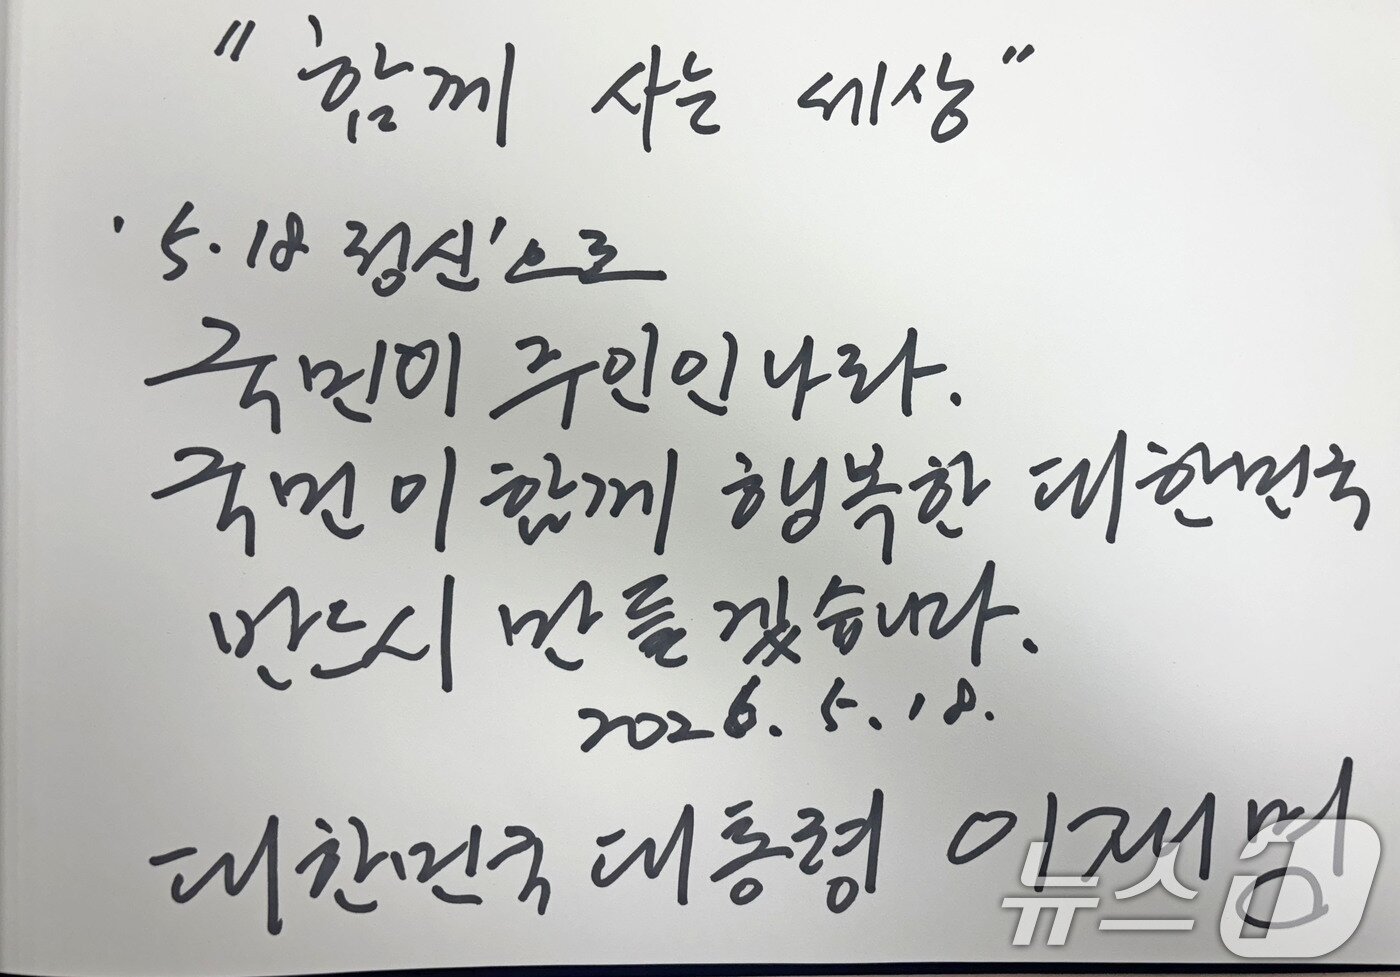 "함께 사는 세상"
'5.18 정신'으로
국민이 주인인 나라.
국민이 함께 행복한 대한민국
반드시 만들겠습니다.
2026. 5. 18.
대한민국 대통령 이재명
뉴스1